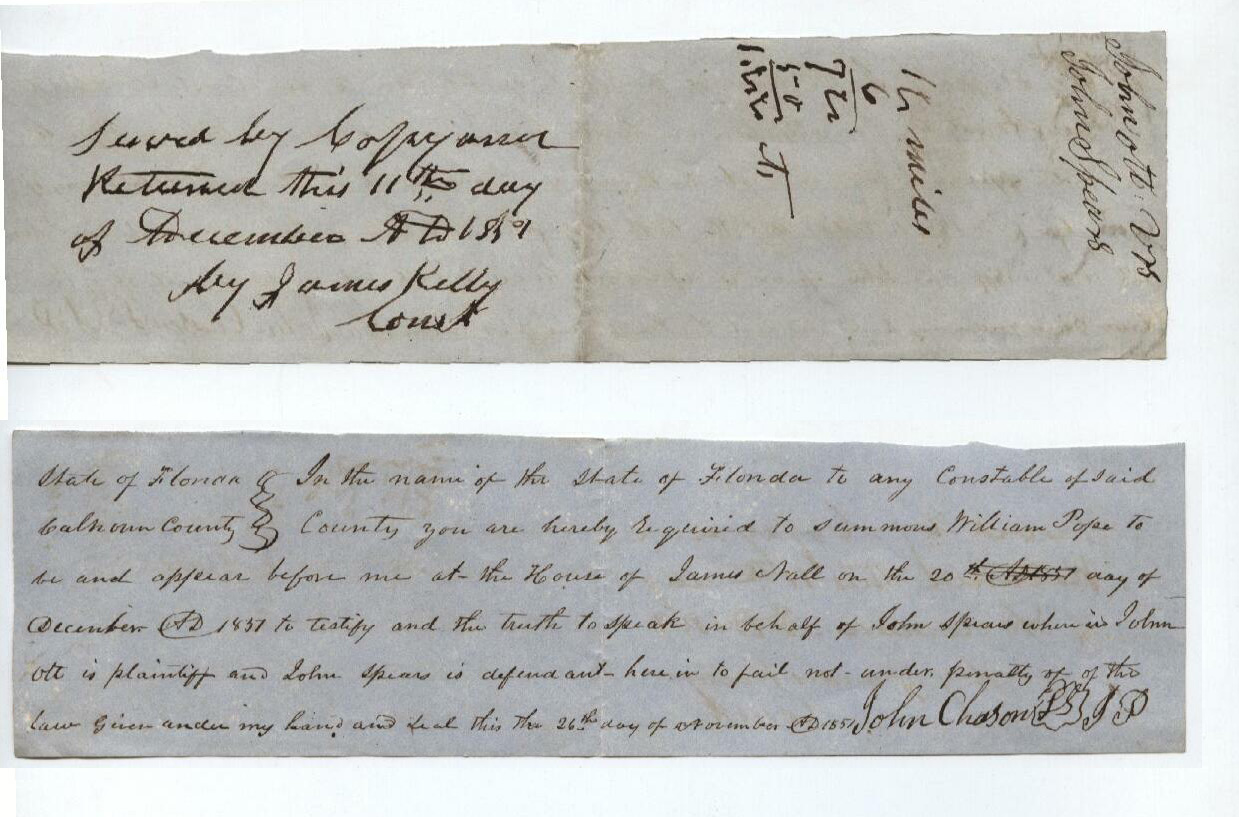 Served by Copy and
Returned this 11th day
of December AD 1851
by James Kelly
Const
12 miles
6
72
50
1.22
John ott Vs
John Spears
State of Florida In the name of the State of Florida to any Constable of said
Calhoun County County you are hereby Required to summons William Pope to
be and appear before me at the House of James Nall on the 20th AD 1851 day of
December AD 1851 to testify and the truth to speak in behalf of John Spears where in John
ott is plaintiff and John Spears is defendant here in to fail not under penalty of of the
law Given under my hand and seal this the 26th day of November AD 1851 John Chason JP